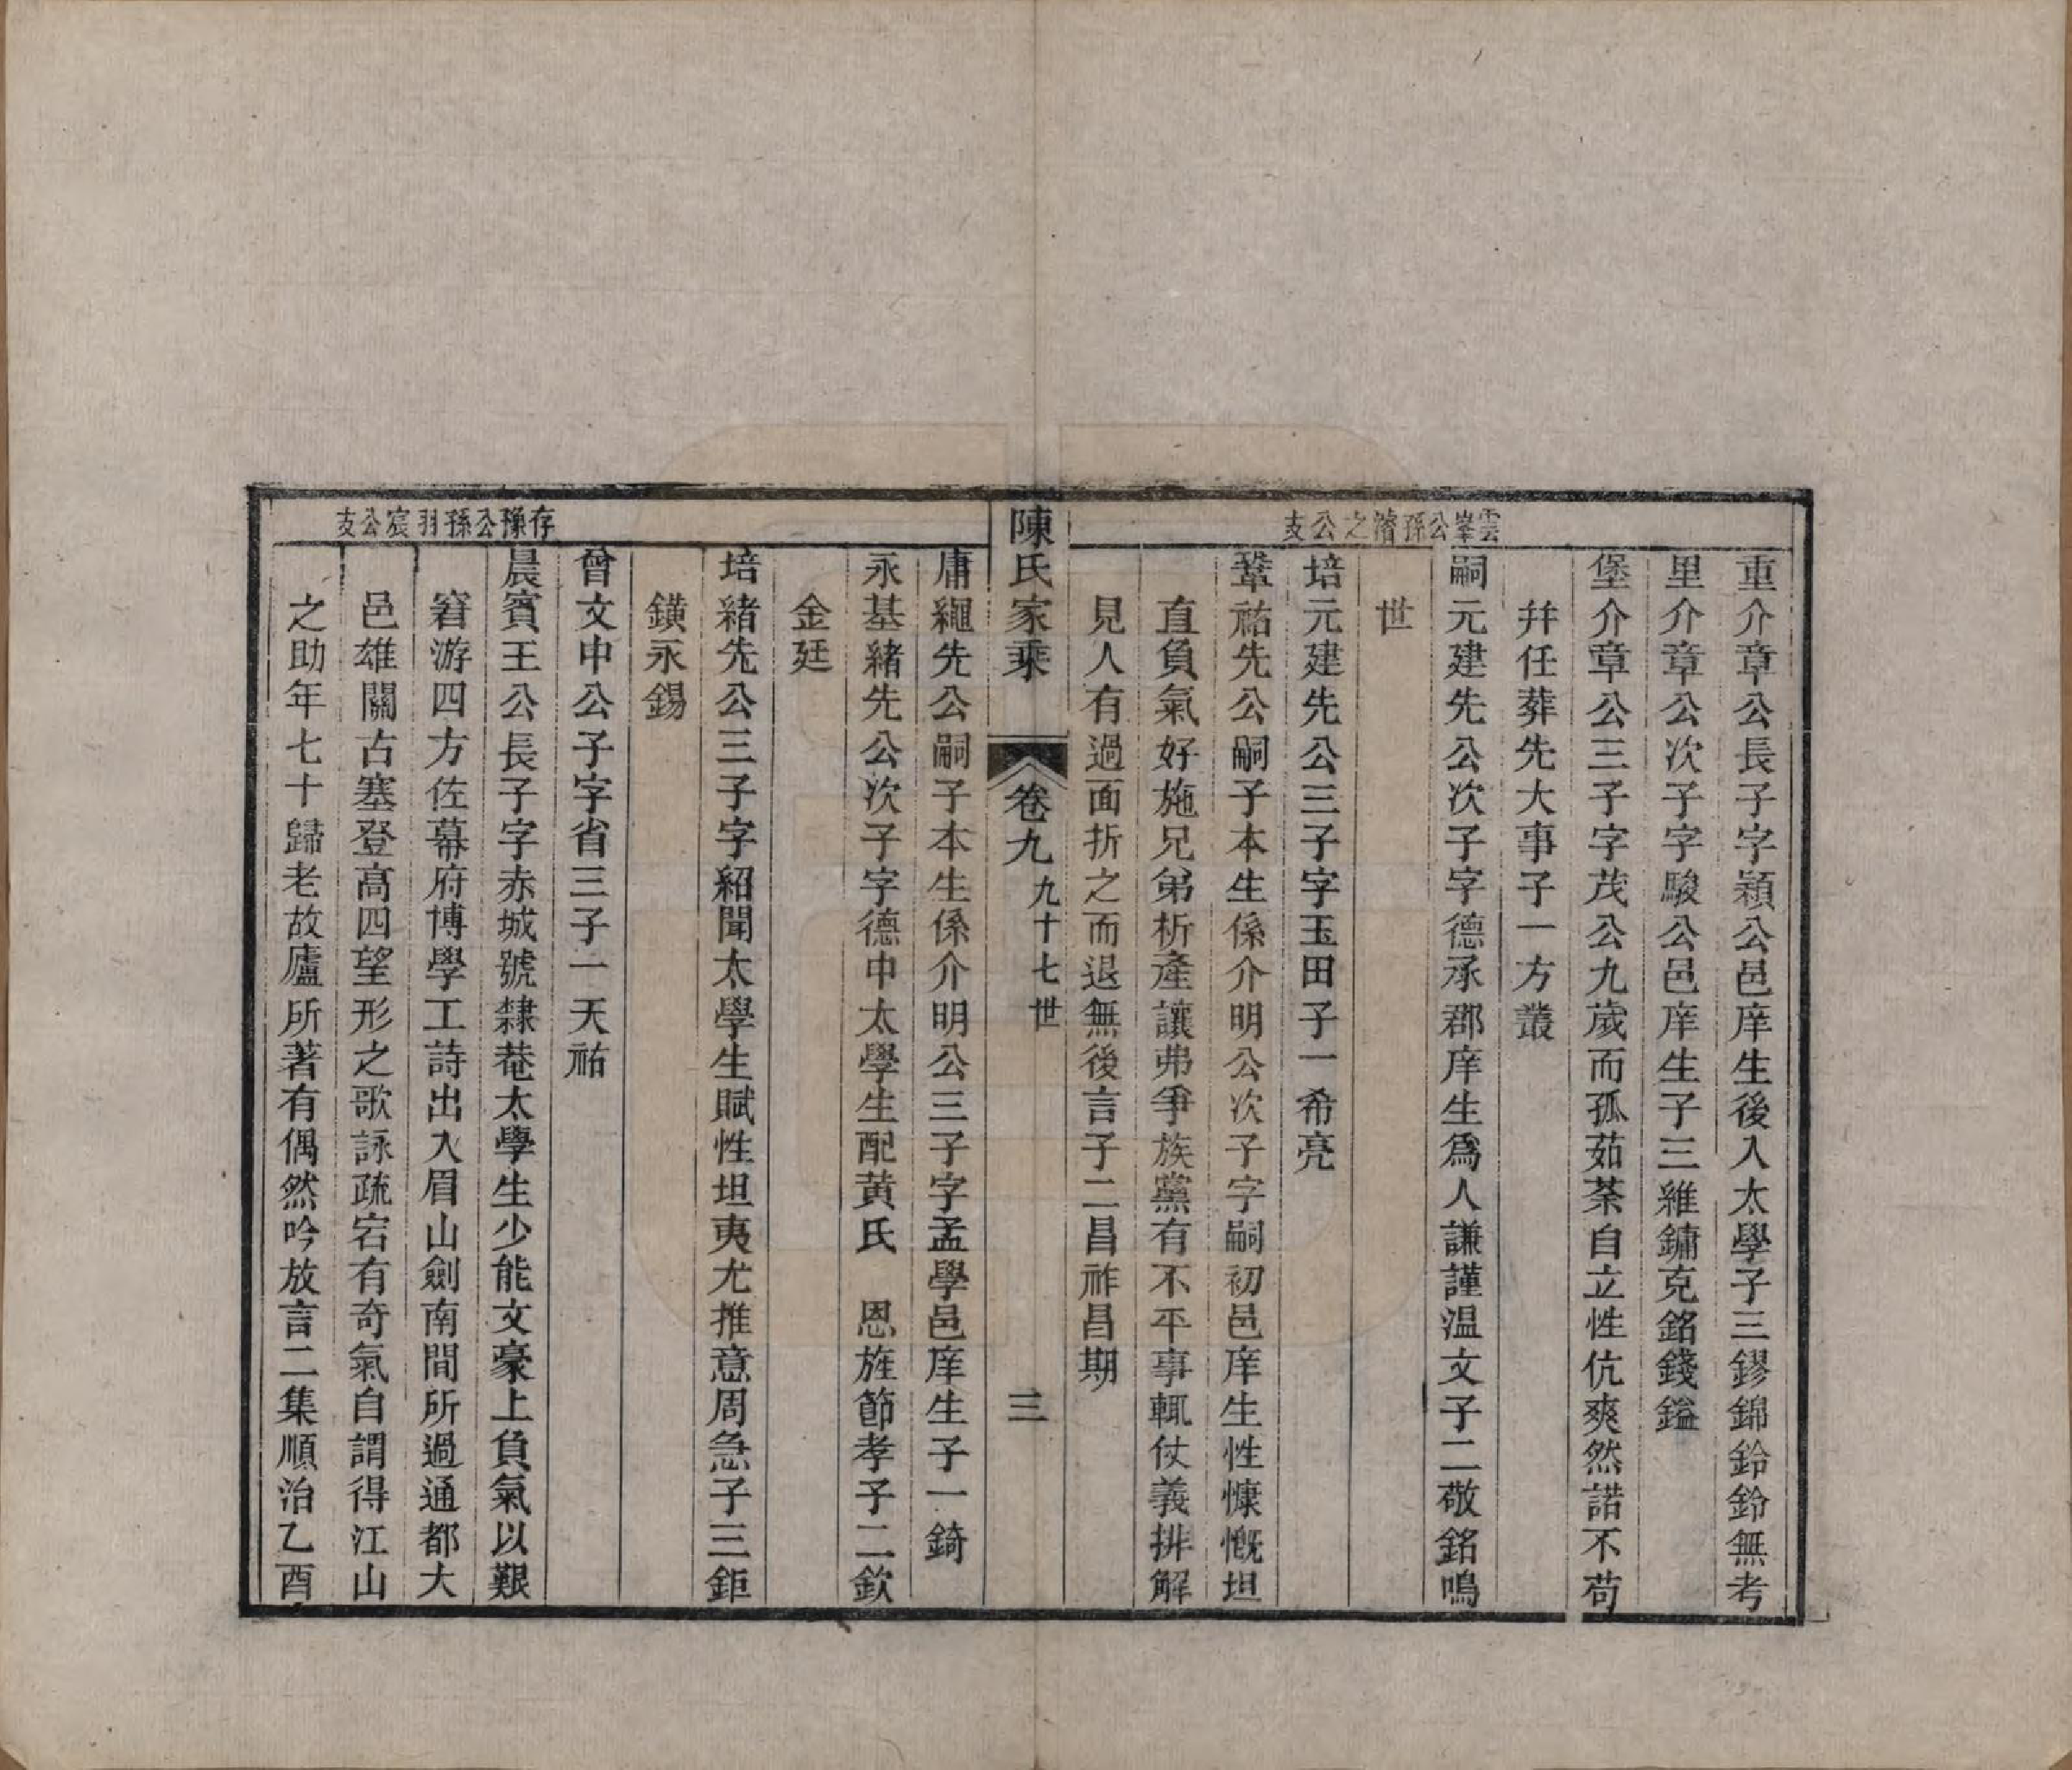 雲峯公孫濳之公支
重介章公長子字潁公邑庠生後入太學子三鏐錦鈴鈴無考
里介章公次子字駿公邑庠生子三維鏞克銘錢鎰
堡介章公三子字茂公九歲而孤茹荼自立性伉爽然諾不苟
幷任葬先大事子一方叢
嗣元建先公次子字德承郡庠生爲人謙謹温文子二敬銘鳴
世
培元建先公三子字玉田子一希亮
鞏祐先公嗣子本生係介明公次子字嗣初邑庠生性慷慨坦
直負氣好施兄弟析產讓弗爭族黨有不平事輒仗義排解
見人有過面折之而退無後言子二昌祚昌期
陳氏家乘 卷九 九十七世 三
存豫公孫羽宸公支
庸繩先公嗣子本生係介明公三子字孟學邑庠生子一錡
永基緒先公次子字德中太學生配黄氏 恩旌節孝子二欽
金廷
培緒先公三子字紹聞太學生賦性坦夷尤推意周急子三鉅
鐄永錫
曾文中公子字省三子一天祐
晨賓王公長子字赤城號隸菴太學生少能文豪上負氣以艱
窘游四方佐幕府博學工詩出入眉山劍南間所過通都大
邑雄關古塞登高四望形之歌詠疏宕有奇氣自謂得江山
之助年七十歸老故廬所著有偶然吟放言二集順治乙酉